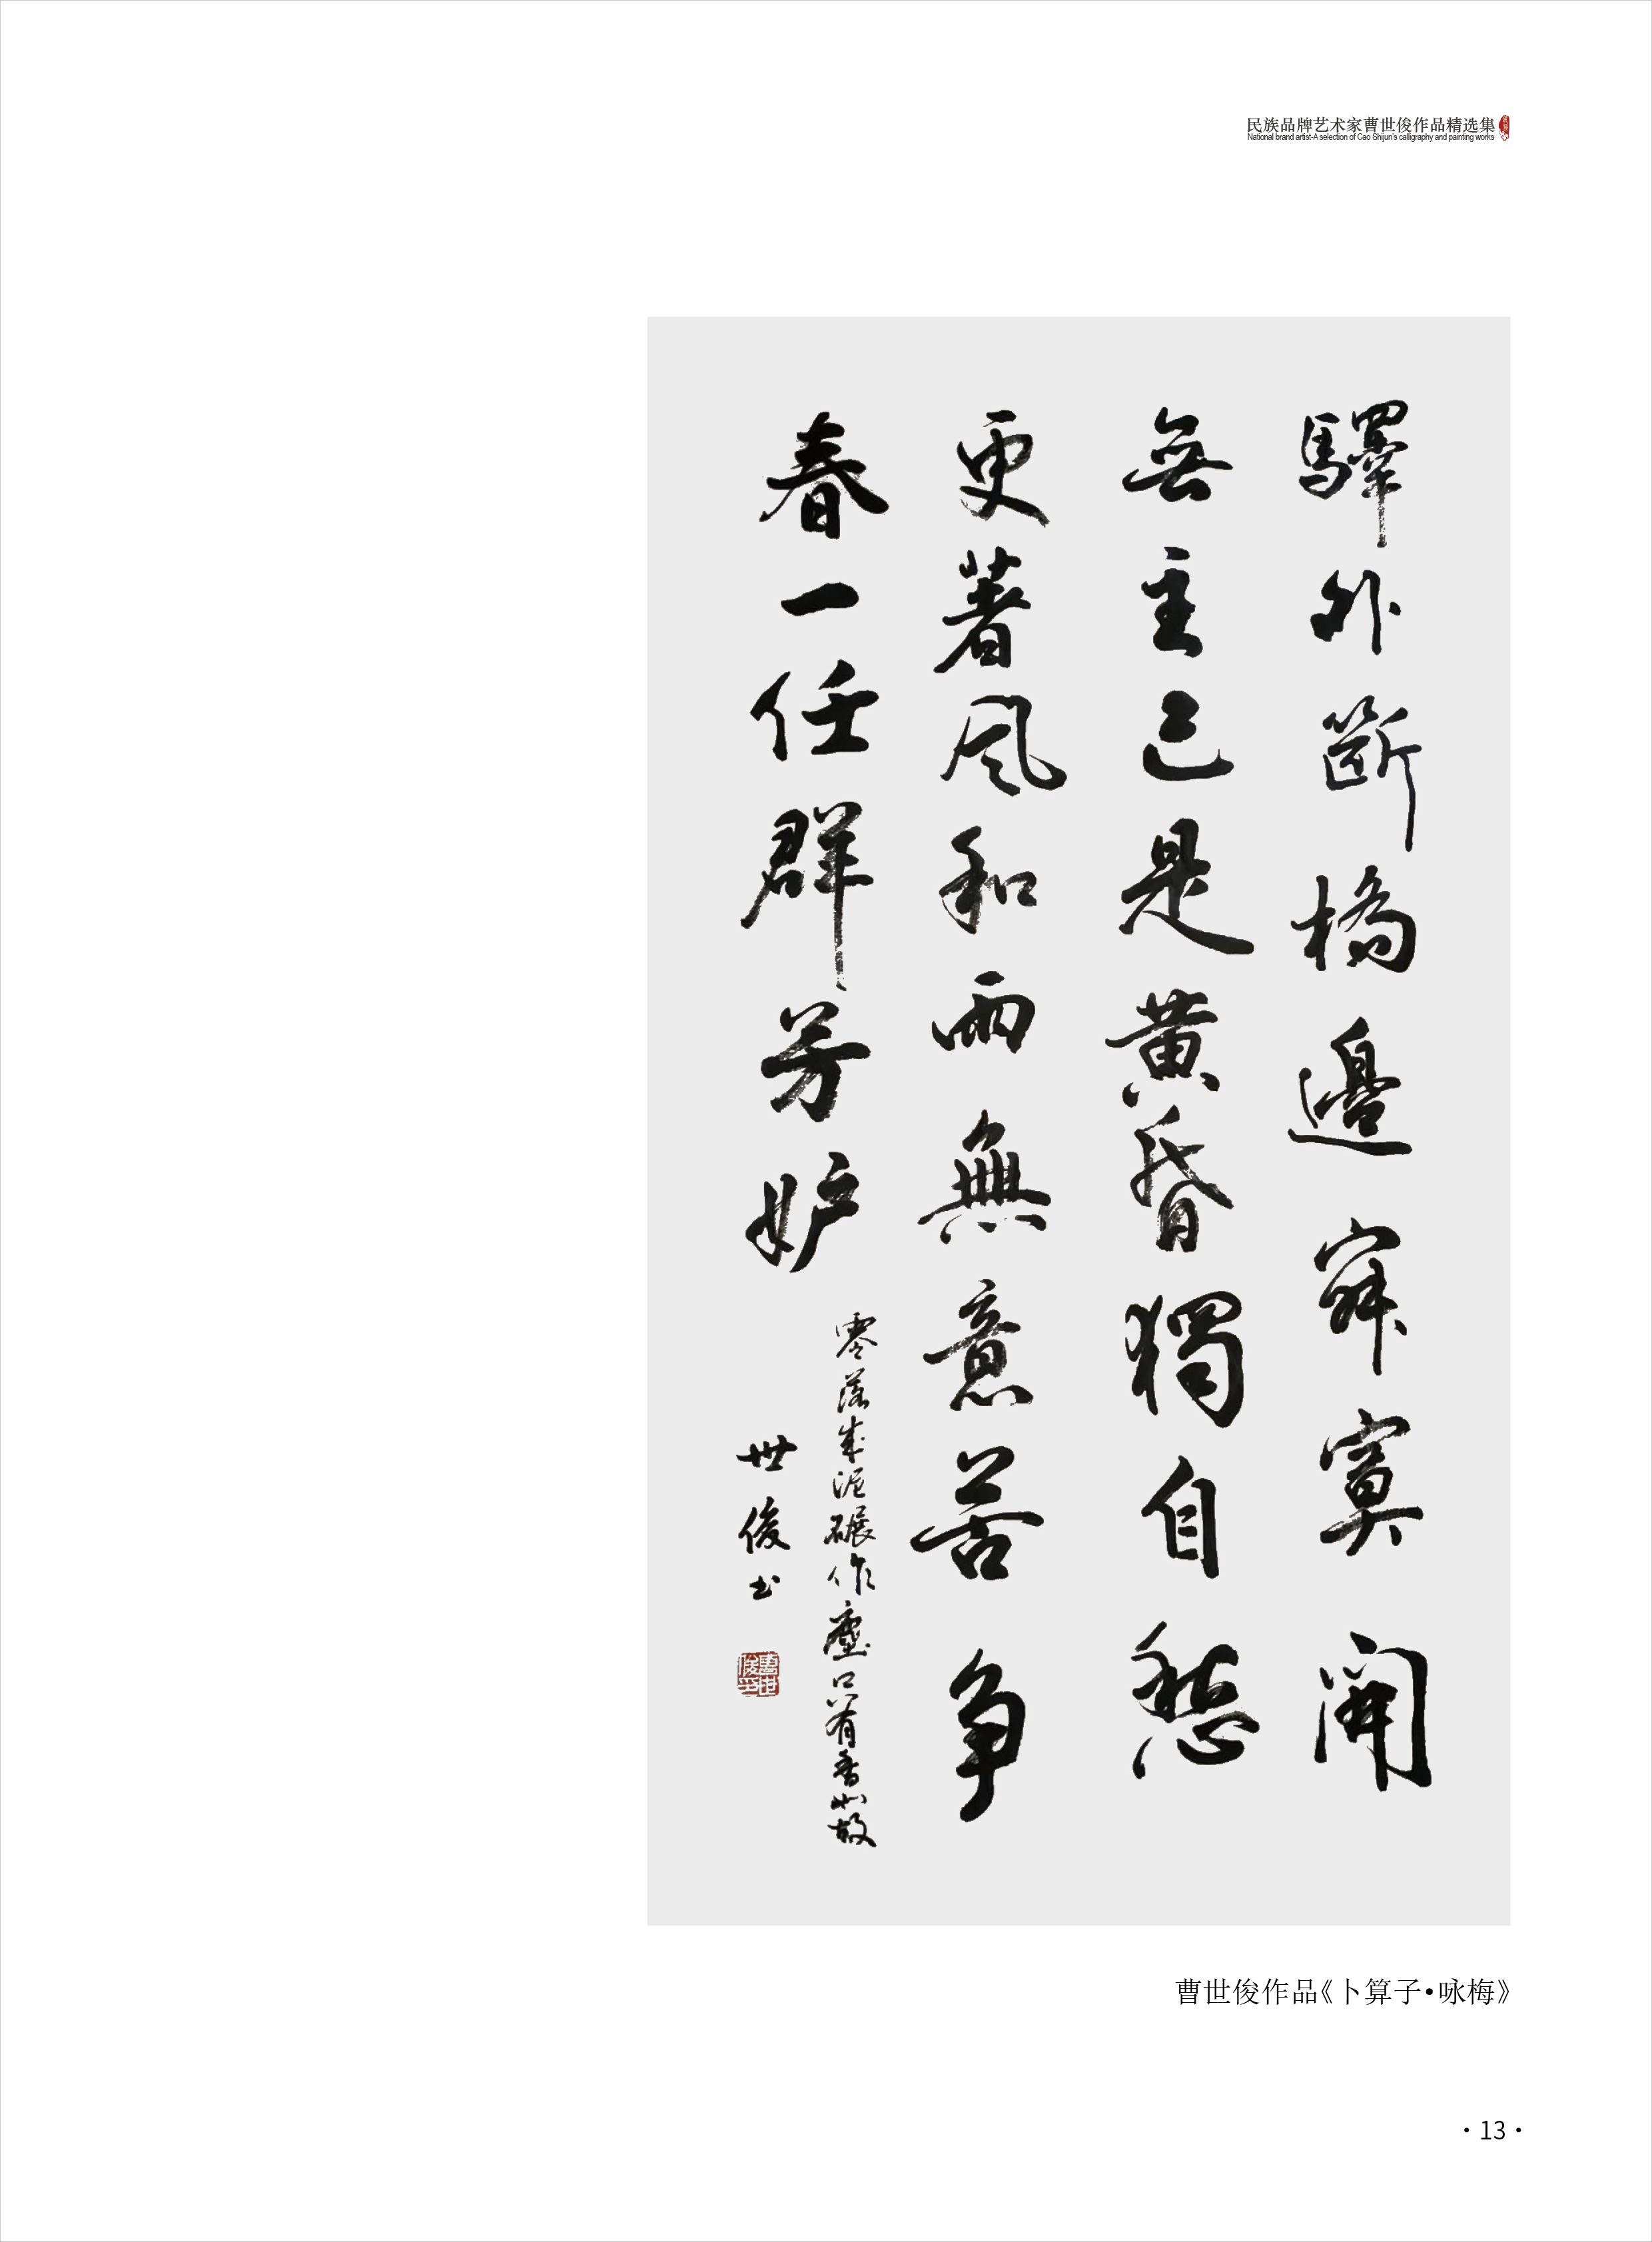 民族品牌艺术家曹世俊作品精选集
National brand artist-A selection of Cao Shijun's calligraphy and painting works
驛外斷橋邊寂寞開
無主已是黄昏獨自愁
更著风和雨無意苦争
春一任群芳妒
零落成泥碾作塵只有香如故
世俊书
曹世俊作品《卜算子•咏梅》
·13·